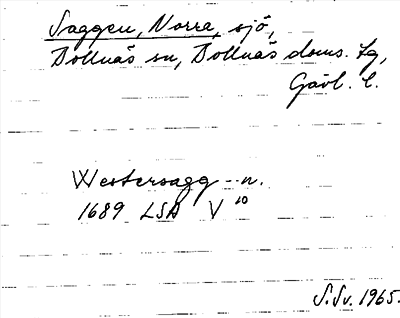 Saggen, Norra, sjö,
Bollnäs sn, Bollnäs doms. tg,
Gävl. l.
Westersagg - n.
1689 LSA V 10
S.Sv. 1965.